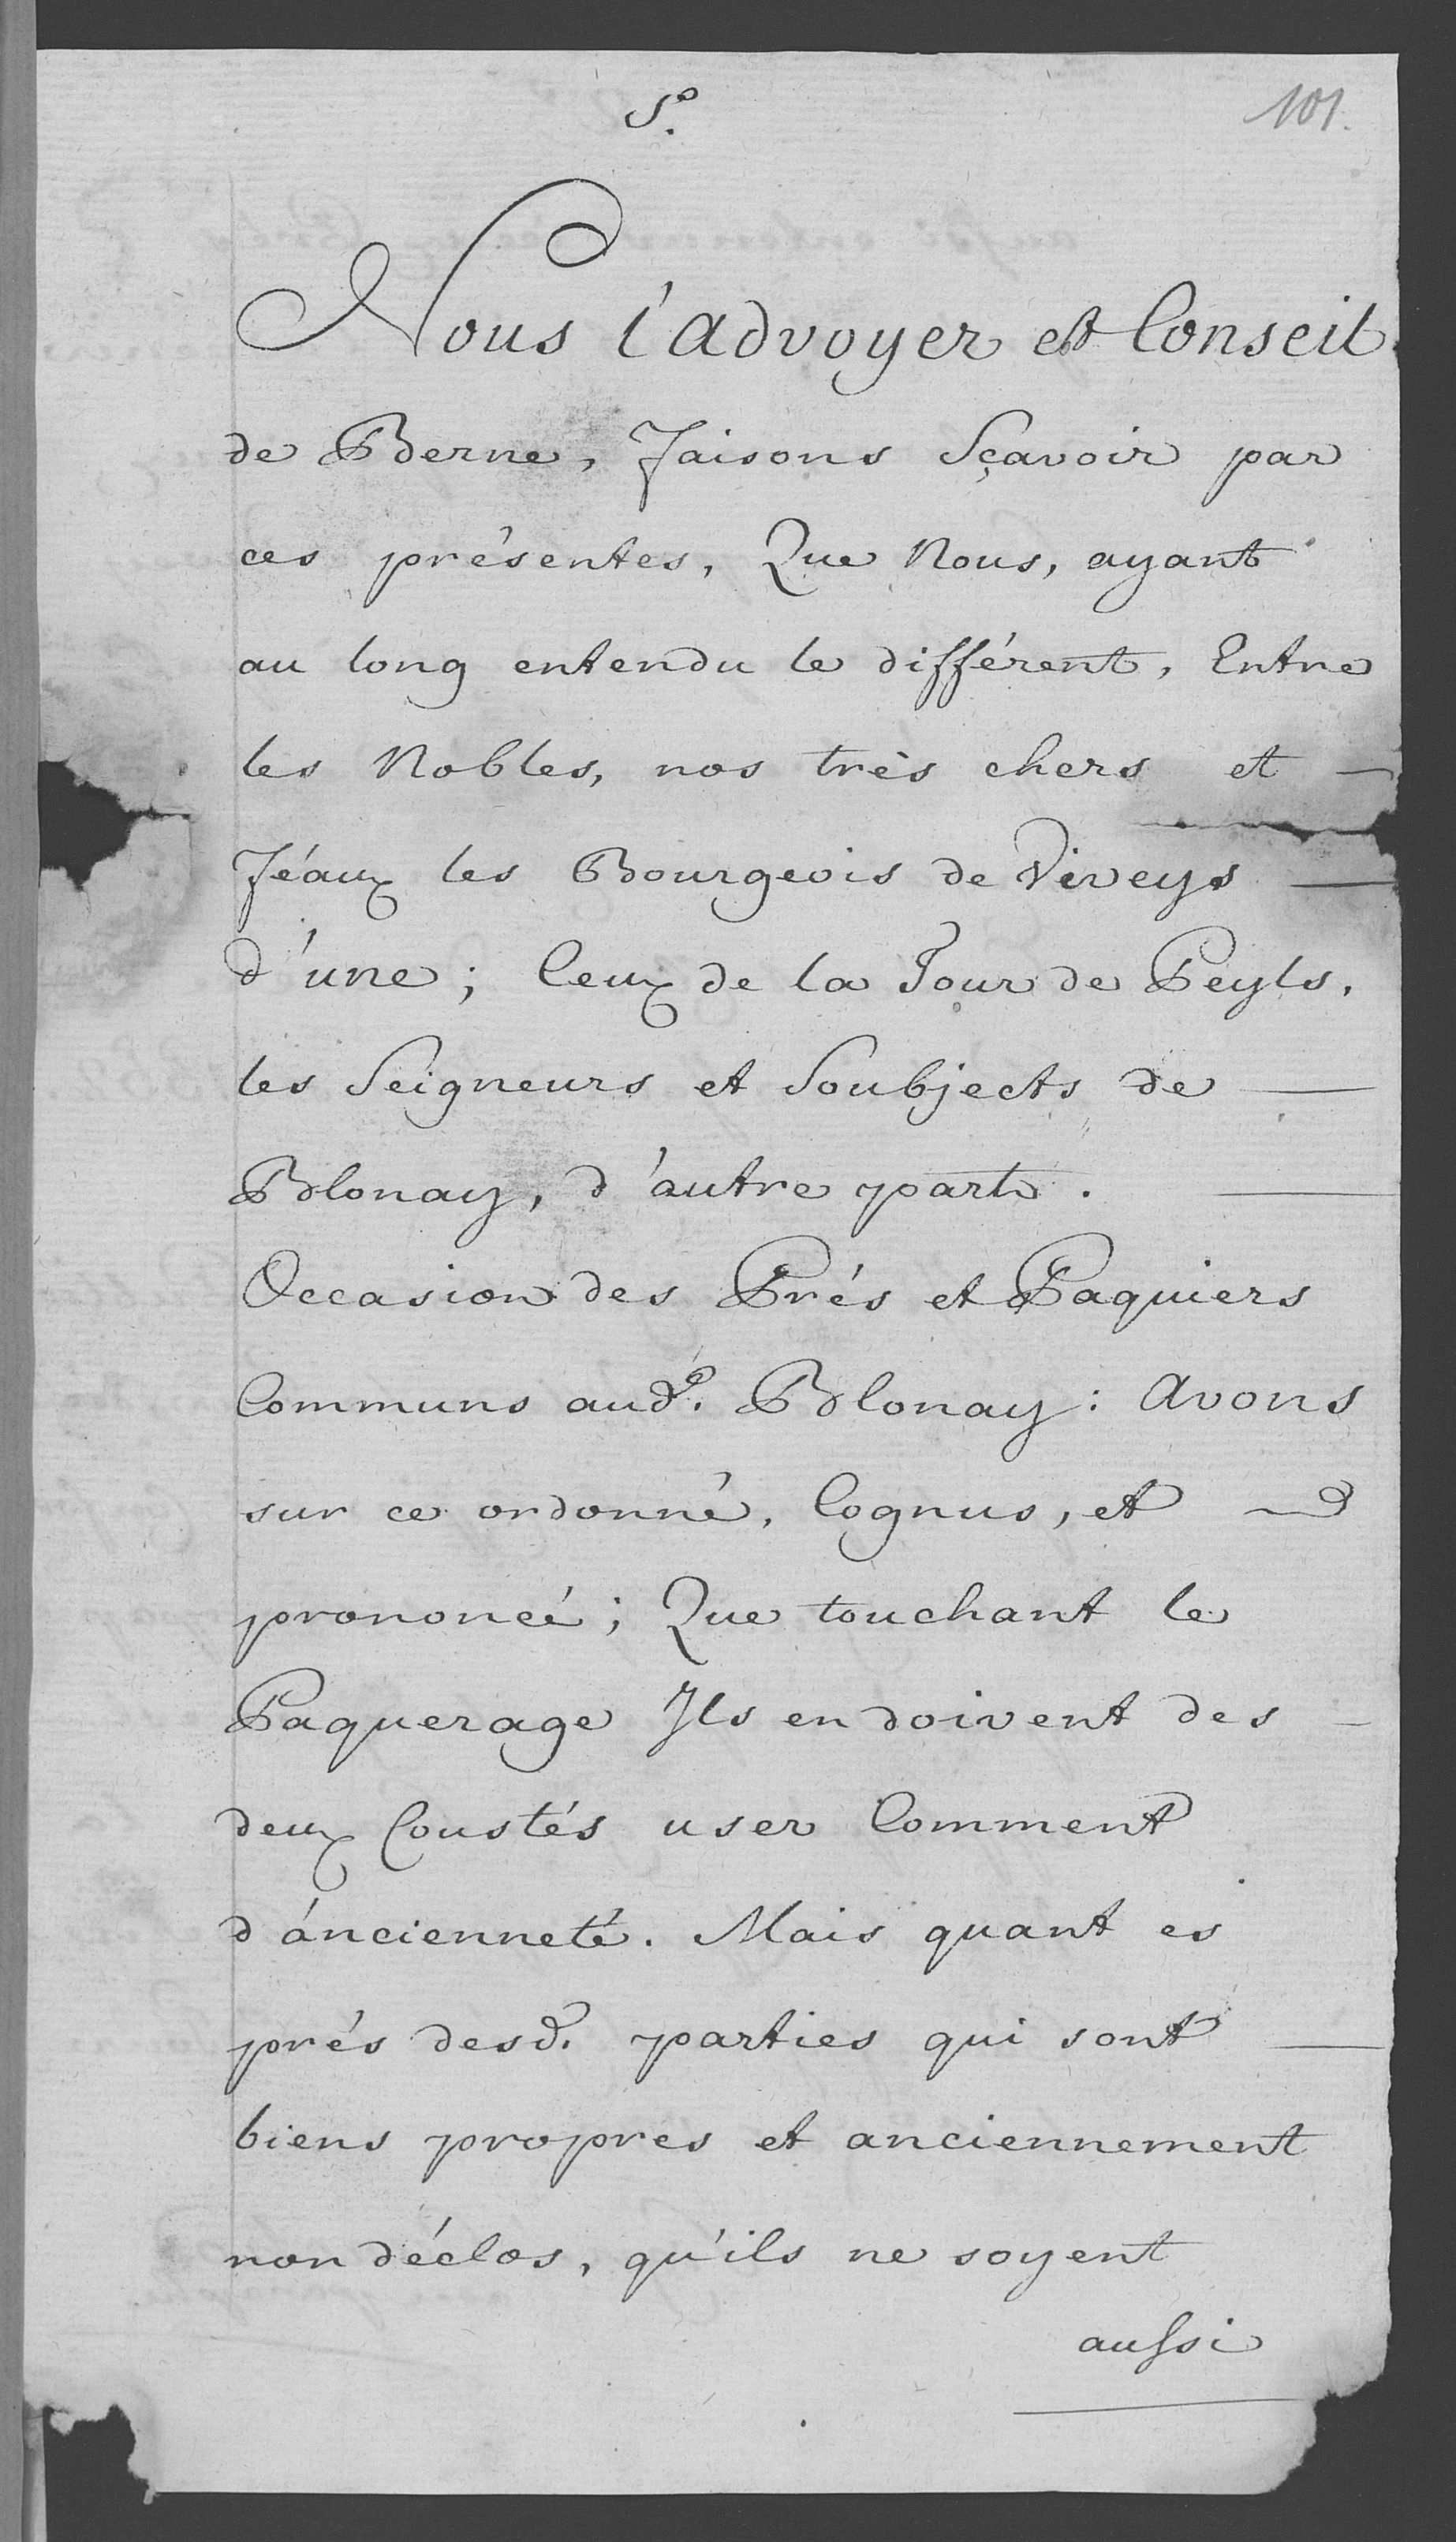 5º.
101.
Nous l'advoyer et Conseil
de Berne, faisons sçavoir par
ces présentes, Que Nous, ayant
au long entendu le différent, Entre
les Nobles, nos très chers et
féaux les Bourgeois de Viveys
d'une; Ceux de la Tour de Peyls,
les Seigneurs et Soubjects de
Blonay, d'autre part.
Occasion des Prés et Paquiers
Communs aud.º Blonay: avons
sur ce ordonné, Cognus, et
prononcé; Que touchant le
Paquerage Ils en doivent des
deux Coustés user Comment
d'ancienneté. Mais quant es
prés desd. parties qui sont
biens propres et anciennement
non déclos, qu'ils ne soyent
aussi